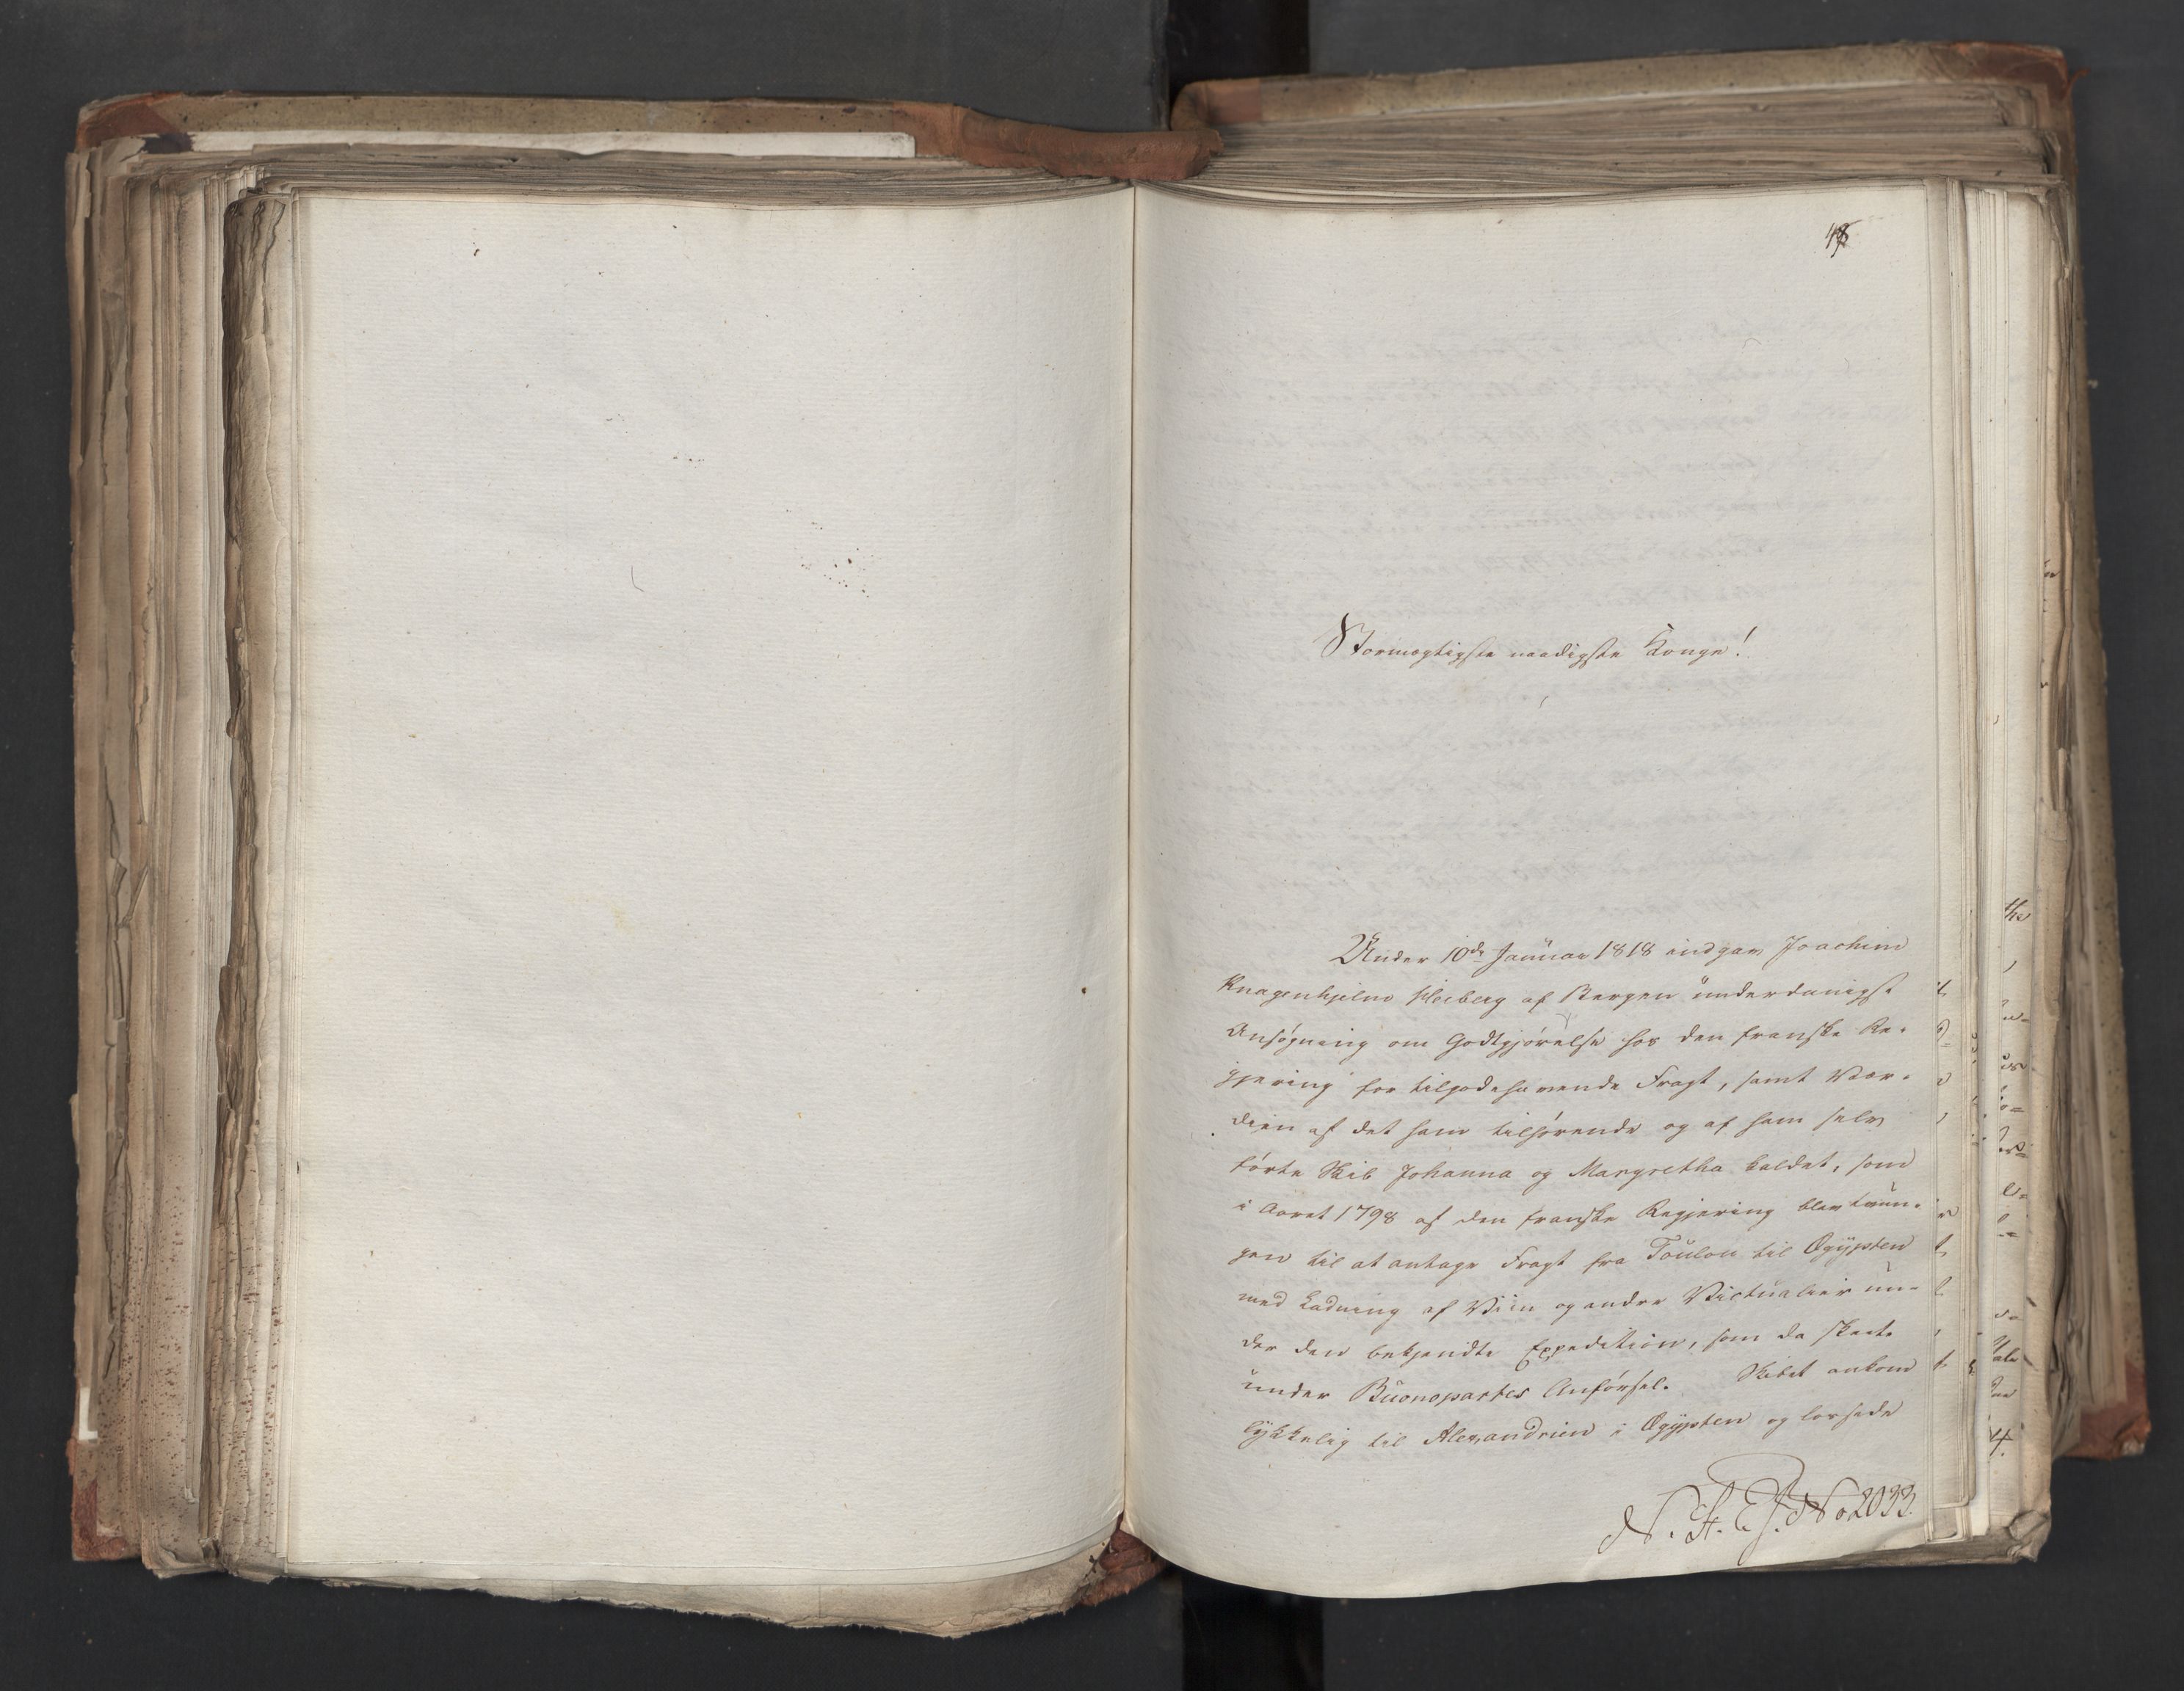 48
Stormægtigste naadigste Konge!
Under 10de Januar 1818 indgav Joachim
Knagenhjelm Wiberg af Bergen underdanigst
Ansøgning om Godtgjørelse hos den franske Re-
gjering for tilgodehavende Fragt, samt Vær-
dien af det ham tilhørende og af ham selv
førte Skib Johanna og Margretha kaldet, som
i Aaret 1798 af den franske Regjering blev tvun-
gen til at antage Fragt fra Toulon til Ægypten
med Ladning af Viin og andre Victualier un-
der den bekjendte Expedition, som da skeete
under Buonopartes Anførsel. Skibet ankom
lykkelig til Alexandrien i Ægypten og lossede
No 2033.